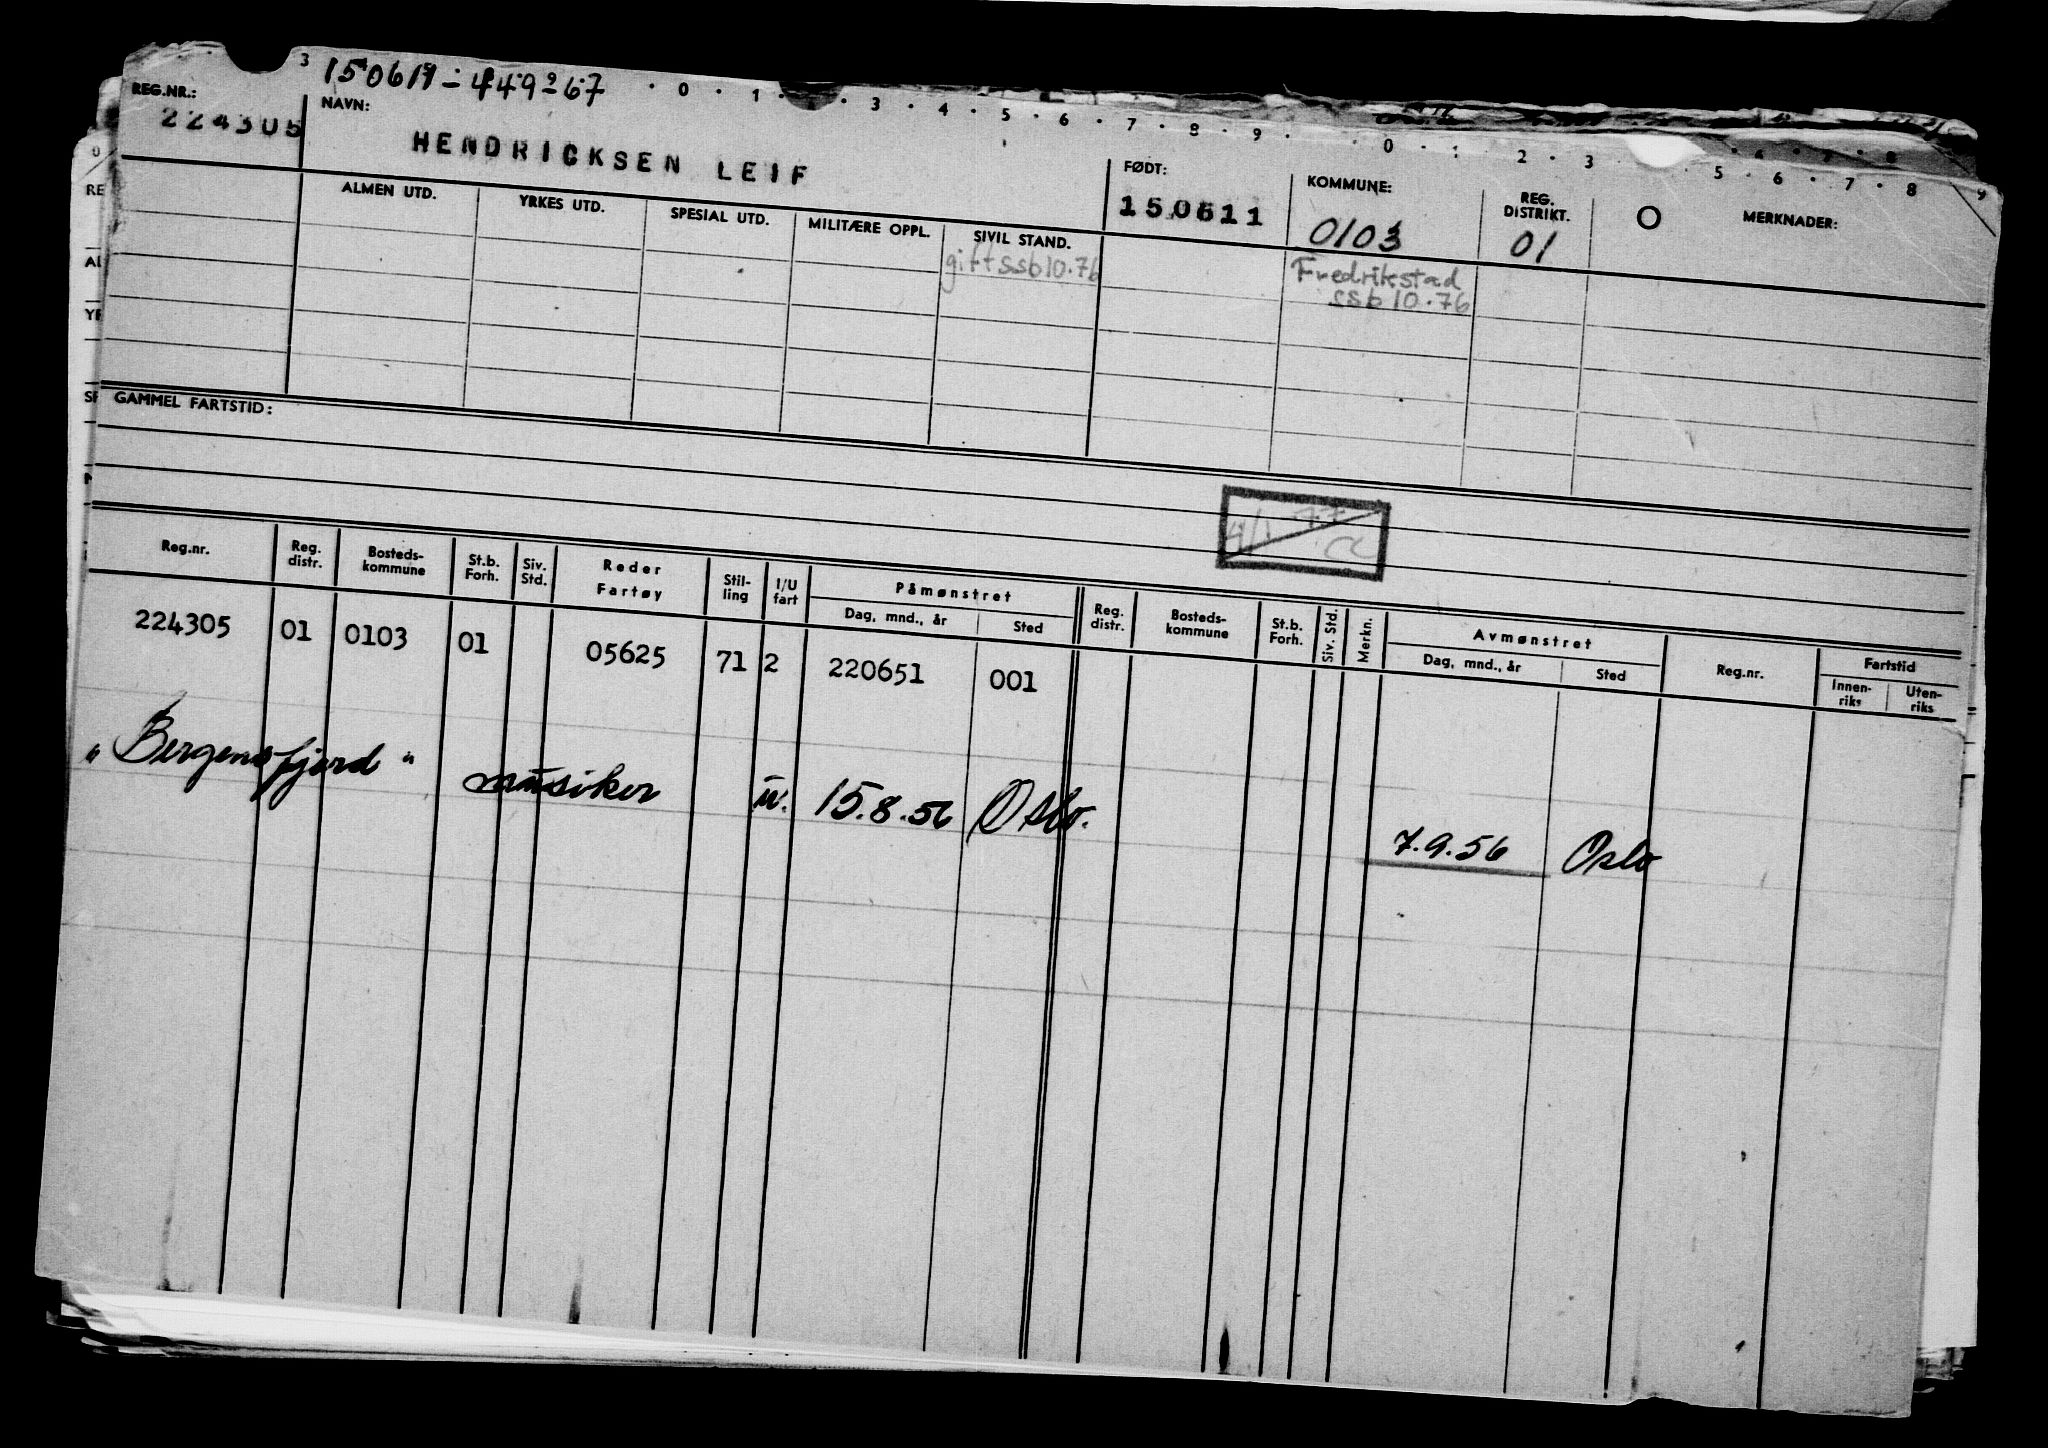 3 150611-449-67 · 0 · 1 · · 3 · 4 · 5 · 6 · 7 · 8 · 9 · 0 · 1 · 2 · 3 5 · 6 · 7 · 8 9
REG.NR.: NAVN: FØDT: KOMMUNE: REG. DISTRIKT. O MERKNADER:
224305 HENDRICKSEN LEIF 150611 0103 01
ALMEN UTD. YRKES UTD. SPESIAL UTD. MILITÆRE OPPL. SIVIL STAND.
gift ssb 10.76 Fredrikstad
ssb 10.76
GAMMEL FARTSTID:
4/1 77
Reg.nr. Reg. distr. Bosteds- kommune St.b. Forh. Siv. Std. Reder Fartøy Stil- ling I/U fart Påmønstret Reg. distr. Bosteds- kommune St.b. Forh. Siv. Std. Merkn. Avmønstret Reg.nr. Fartstid
Dag, mnd., år Sted Dag, mnd., år Sted Innen- riks Uten- riks
224305 01 0103 01 05625 71 2 220651 001
"Bergensfjord" musiker u. 15.8.56 Oslo. 7.9.56 Oslo